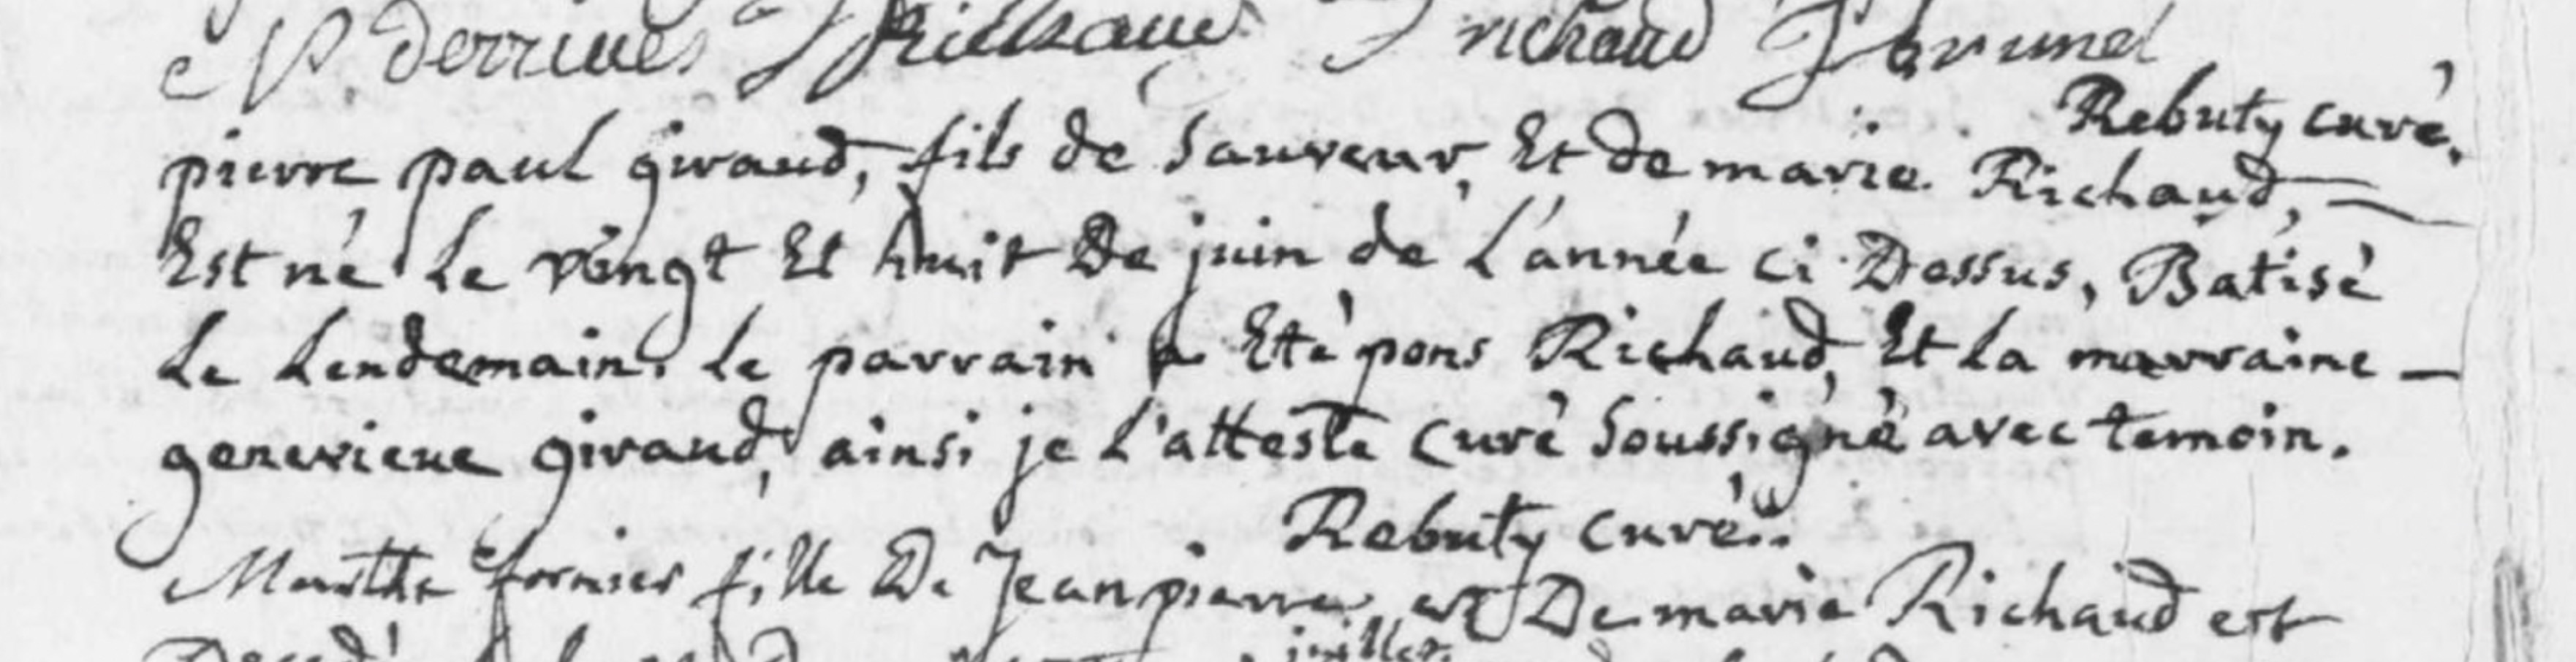 N. derrives Richaud J richaud J brunel
Rebuty curé.
pierre paul giraud, fils de Sauveur, Et de marie Richaud,
Est né Le vingt Et huit De juin de L'année ci Dessus, Batisé
Le Lendemain. Le parrain a Eté pons Richaud, Et La marraine
genevieve giraud, ainsi je L'atteste Curé Soussigné avec temoin.
Rebuty Curé.
Marthe formier fille De Jean pierre et De marie Richaud est
juillet